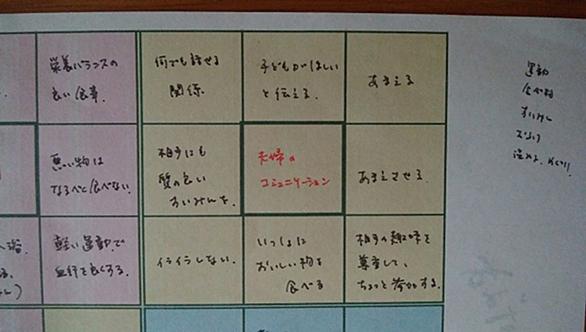 栄養バランスの
良い食事.
何でも話せる
関係.
子どもがほしい
と伝える.
あまえる
悪い物は
なるべく食べない.
相手にも
質の良い
すいみんを.
夫婦の
コミュニケーション
あまえさせる.
軽い運動で
血行を良くする.
イライラしない.
いっしょに
おいしい物を
食べる
相手の趣味を
尊重して、
ちょっと参加する.
運動
食べ物
すいみん